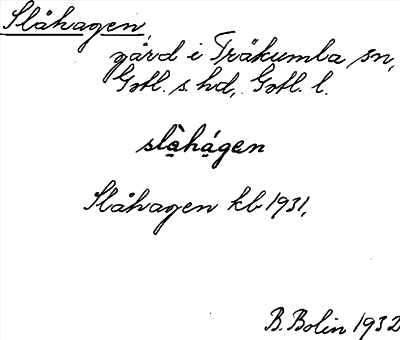 Slåhagen,
gård i Träkumla sn,
Gotl. s. hd, Gotl. l.
slà̱há̱gen
Slåhagen kb 1931,
B. Bolin 1932